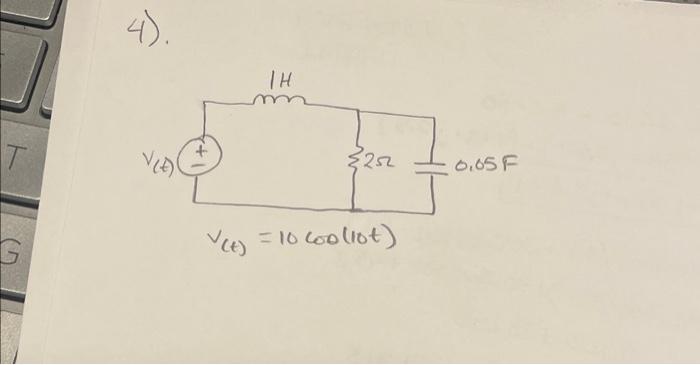 4).
1H
T
V(t)
+
−
2Ω
0.05F
V(t) = 10 cos(10t)
G